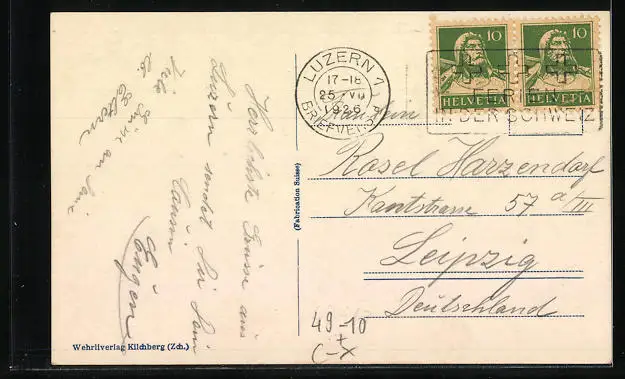 Herzlichste Grüsse aus
Luzern sendet Dir Dein
Cousin
Eugen
Viele Grüsse an Deine
l. Eltern
Wehrliverlag Kilchberg (Zch.)
(Fabrication Suisse)
LUZERN 1
17-18
25. VII
1926
BRIEFVERS.
10
HELVETIA
10
HELVETIA
FERIEN
IN DER SCHWEIZ
Fräulein
Rosel Harzendorf
Kantstrasse 57 a/III
Leipzig
Deutschland
49-10
+
C-x